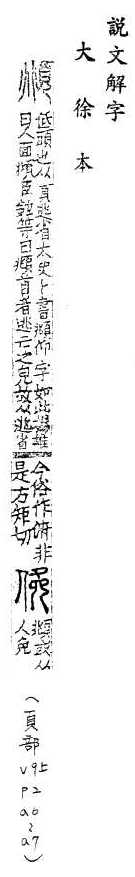 說文解字
大徐本
頫
低頭也从頁逃省太史卜書頫仰字如此揚雄
曰人面頫臣鉉等曰頫首者逃亡之皃故从逃省
今俗作俯非
是方矩切
俛
頫或从
人免
(頁部 v9上 p2 a6~a7)